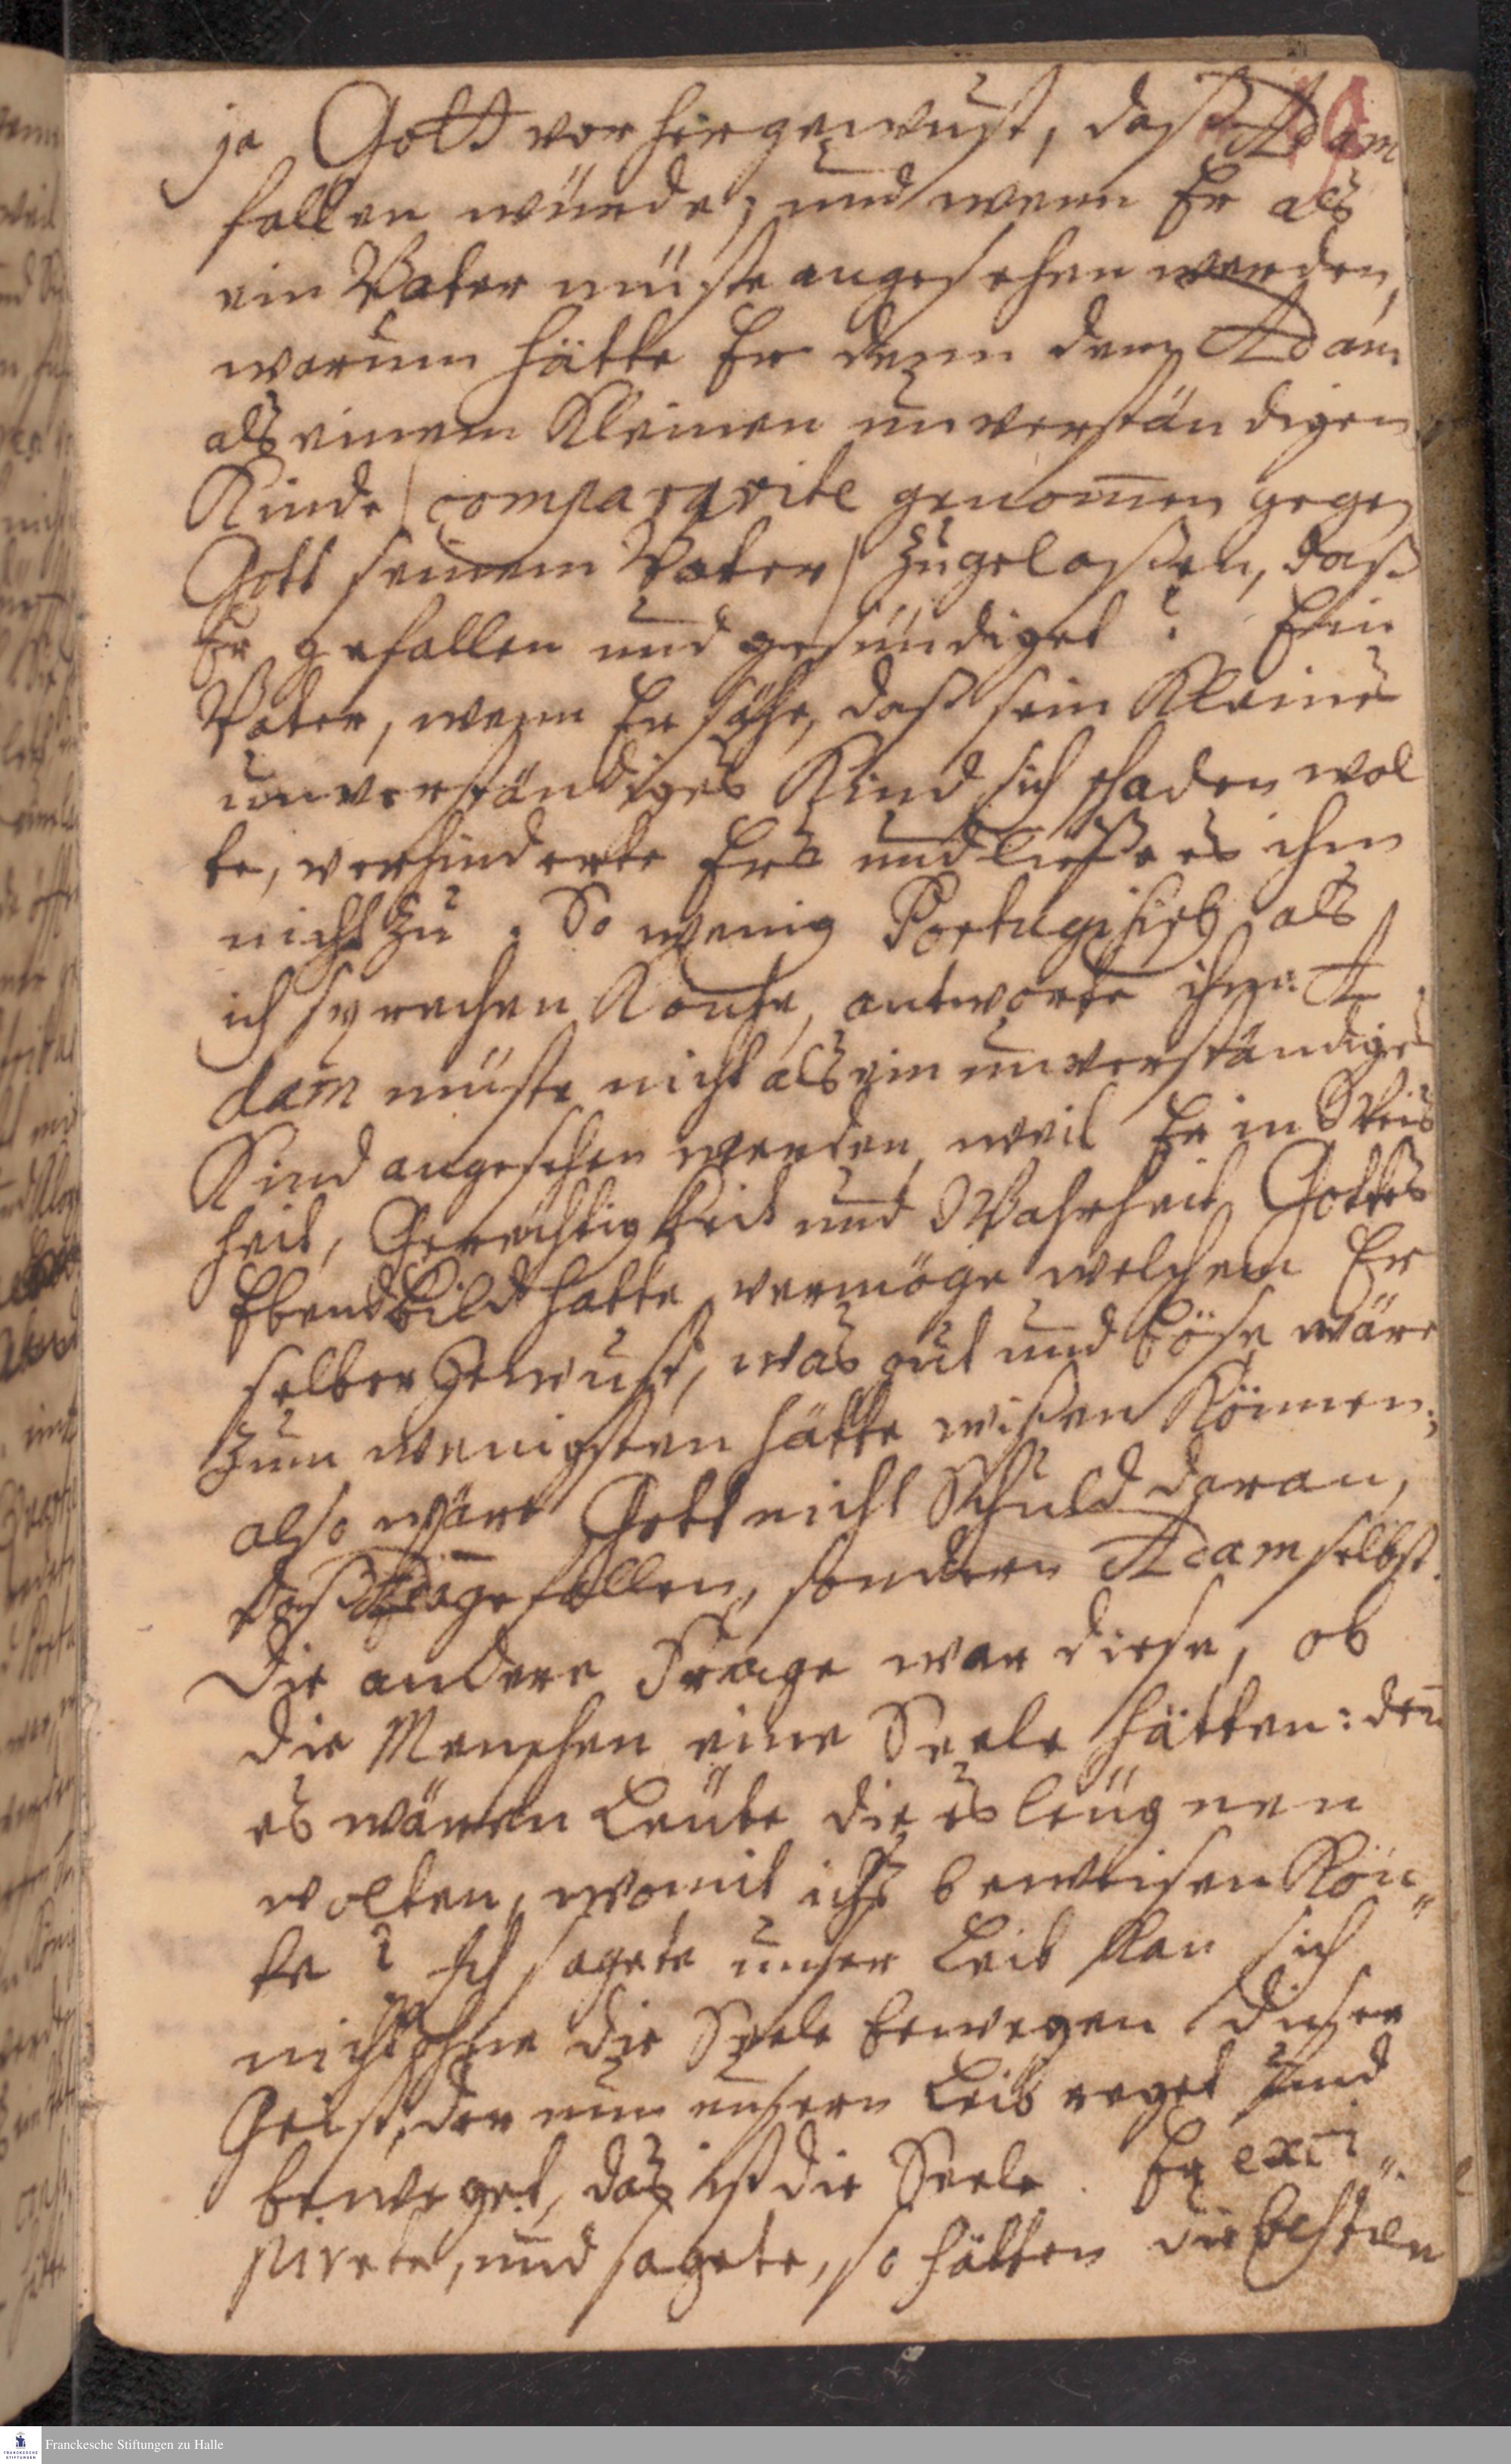 19
ja Gott vorhergewust, daß Adam
fallen würde; und wenn Er als
ein Vater müste angesehen werden,
warum hätte Er denn dem Adam
als einem Kleinen unverständigen
Kinde /comparative genom̅en gegen
Gott seinem Vater/ zugelaßen, daß
Er gefallen und gesündiget? Ein
Vater, wenn Er sähe, daß sein Kleines
unverständiges Kind sich schaden wol
te, verhinderte Ers und ließe es ihm
nicht zu. So wenig Portugisisch als
ich sprechen Konte, antworte ihm: A
dam müste nicht als ein unverständiges
Kind angesehen werden, weil Er in Weis
heit, Gerechtigkeit und Wahrheit Gottes
Ebendbild hatte, vermöge welchem Er
selber gewust, was gut und böse wäre
zum wenigsten hätte wißen Können;
also wäre Gott nicht Schuld daran,
daß gefallen, sondern Adam selbst.
Die andere Frage war diese, ob
die Menschen eine Seele hätten: den̅
es wären Leute die es leugnen
wolten, womit ichs beweisen Kön„
te? Ich sagete unser Leib Kan sich
nicht ohne die Seele bewegen dieser
Geist, der nun unsern Leib reget und
beweget, das ist die Seele. Er exci„
pirete, und sagete, so hätten die Bestien
Franckesche Stiftungen zu Halle